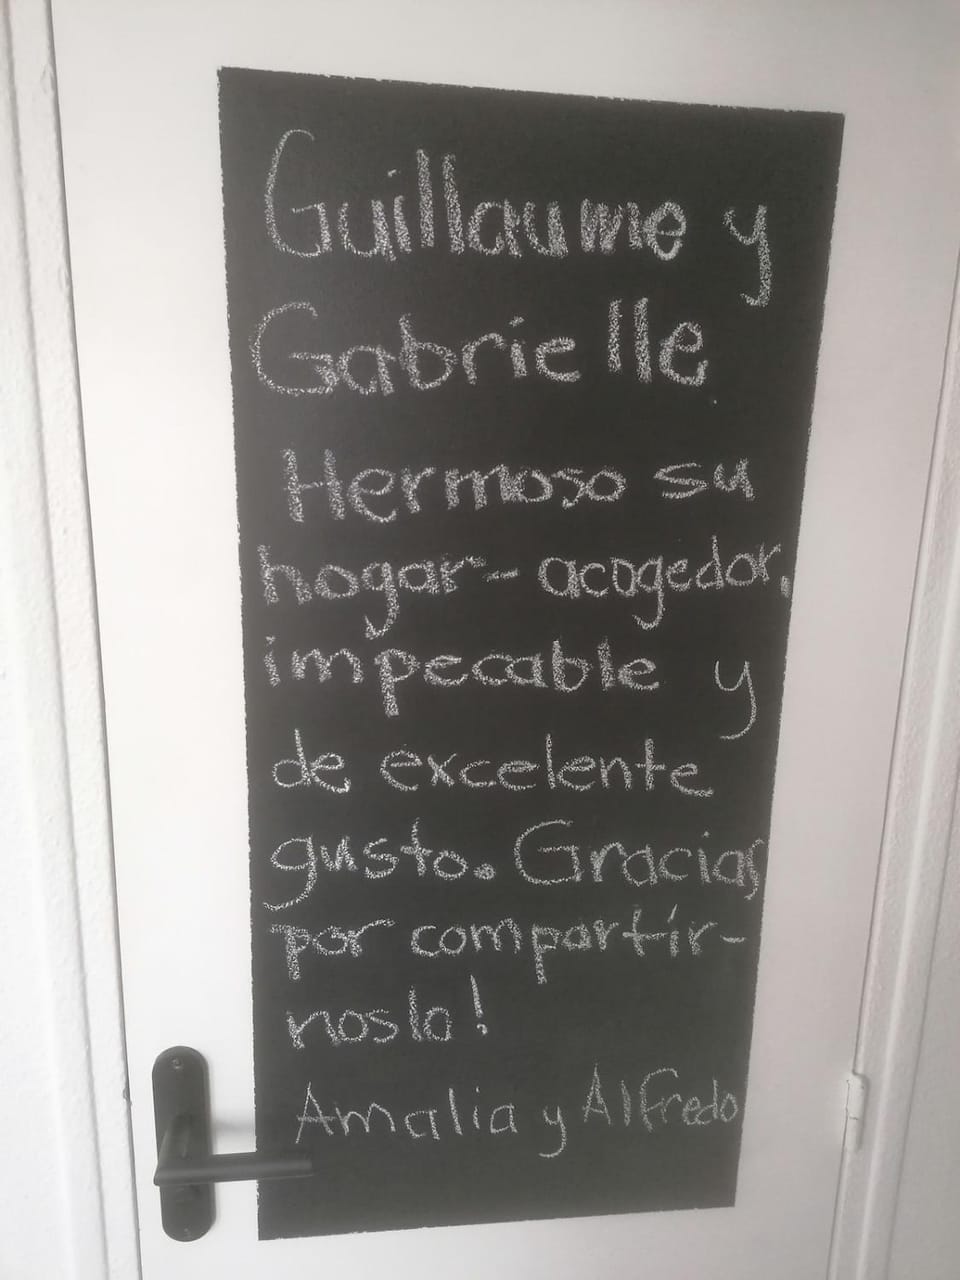 Guillaume y
Gabrielle
Hermoso su
hogar - acogedor,
impecable y
de excelente
gusto. Gracias
por compartír-
noslo!
Amalia y Alfredo